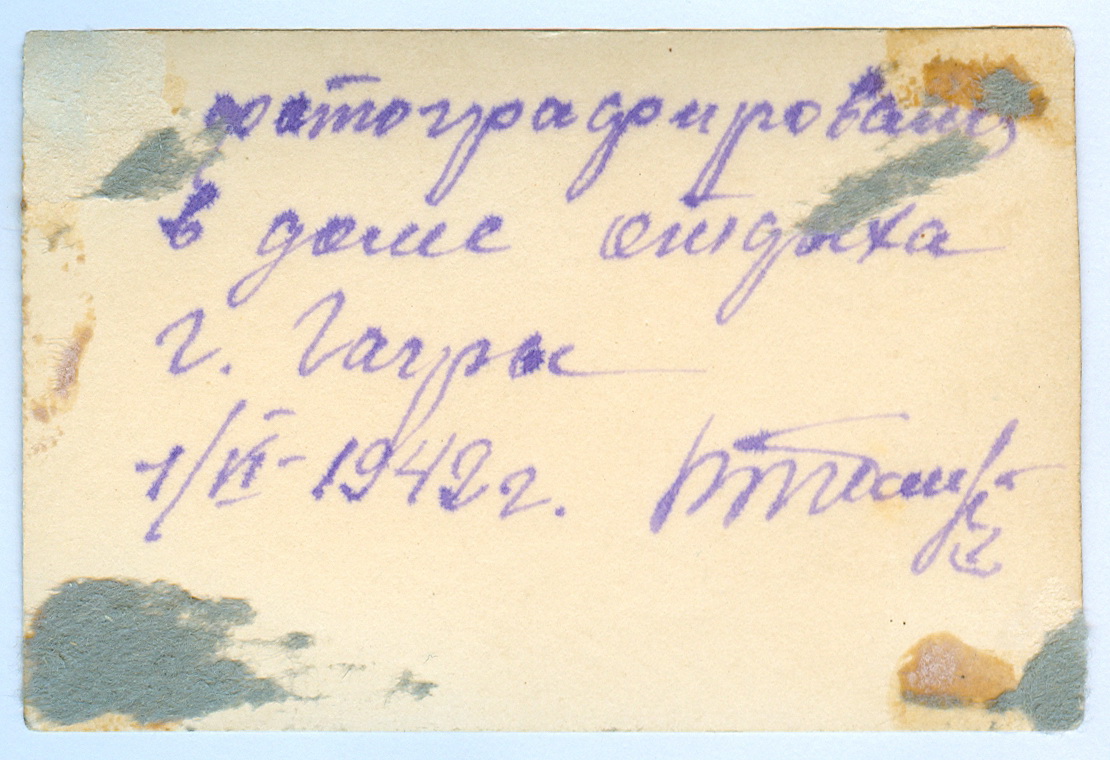 фотографировался
в доме отдыха
г. Гагры
1/VI-1942г.